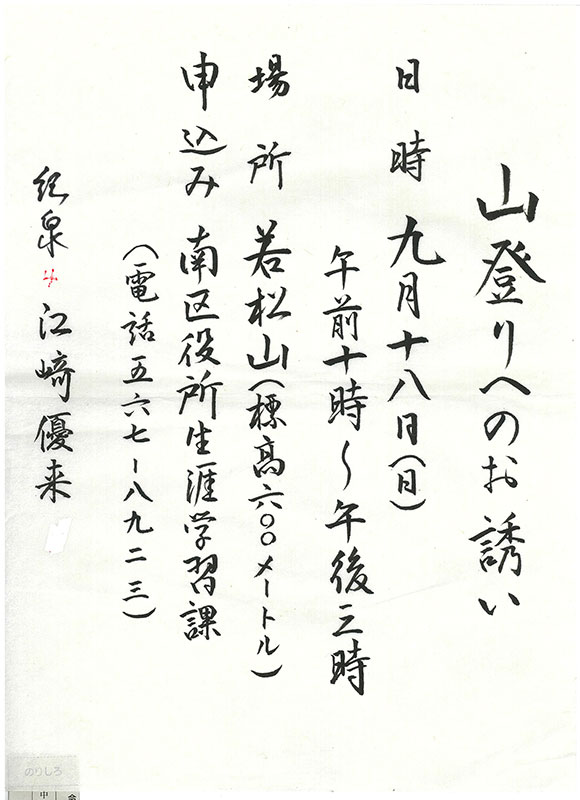 山登りへのお誘い
日時 九月十八日(日)
午前十時〜午後三時
場所 若松山(標高六〇〇メートル)
申込み 南区役所生涯学習課
(電話五六七ー八九二三)
紀泉 江﨑優来
のりしろ
中